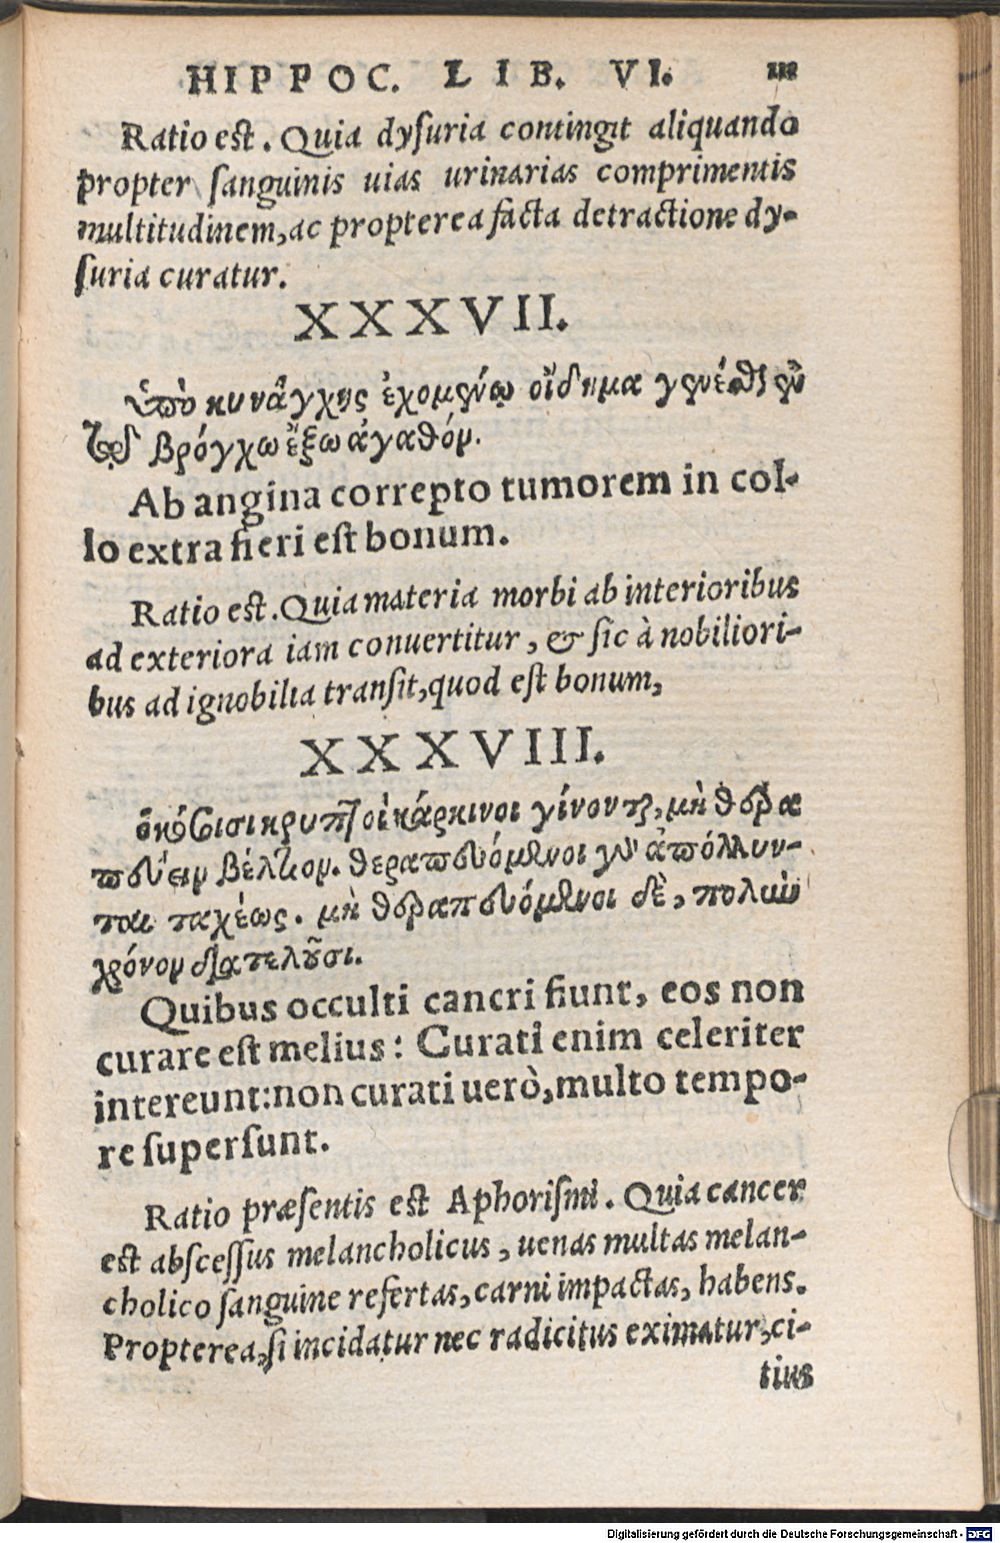 HIPPOC. LIB. VI. 111
Ratio est. Quia dysuria contingit aliquando
propter sanguinis uias urinarias comprimentis
multitudinem, ac propterea facta detractione dy-
suria curatur.
XXXVII.
ὑπὸ κυνάγχης ἐχομένῳ οἴδημα γενέσθαι ἐν
τῷ βρόγχῳ ἔξω ἀγαθόν.
Ab angina correpto tumorem in col-
lo extra fieri est bonum.
Ratio est. Quia materia morbi ab interioribus
ad exteriora iam conuertitur, & sic à nobiliori-
bus ad ignobilia transit, quod est bonum,
XXXVIII.
ὁκόσοισι κρυπτοὶ κάρκινοι γίνονται, μὴ θερα
πεύειν βέλτιον. θεραπευόμενοι γὰρ ἀπόλλυν-
ται ταχέως. μὴ θεραπευόμενοι δὲ, πολὺν
χρόνον διατελοῦσι.
Quibus occulti cancri fiunt, eos non
curare est melius: Curati enim celeriter
intereunt: non curati uerò, multo tempo-
re supersunt.
Ratio præsentis est Aphorismi. Quia cancer
est abscessus melancholicus, uenas multas melan-
cholico sanguine refertas, carni impactas, habens.
Propterea, si incidatur nec radicitus eximatur, ci-
tius
Digitalisierung gefördert durch die Deutsche Forschungsgemeinschaft - DFG